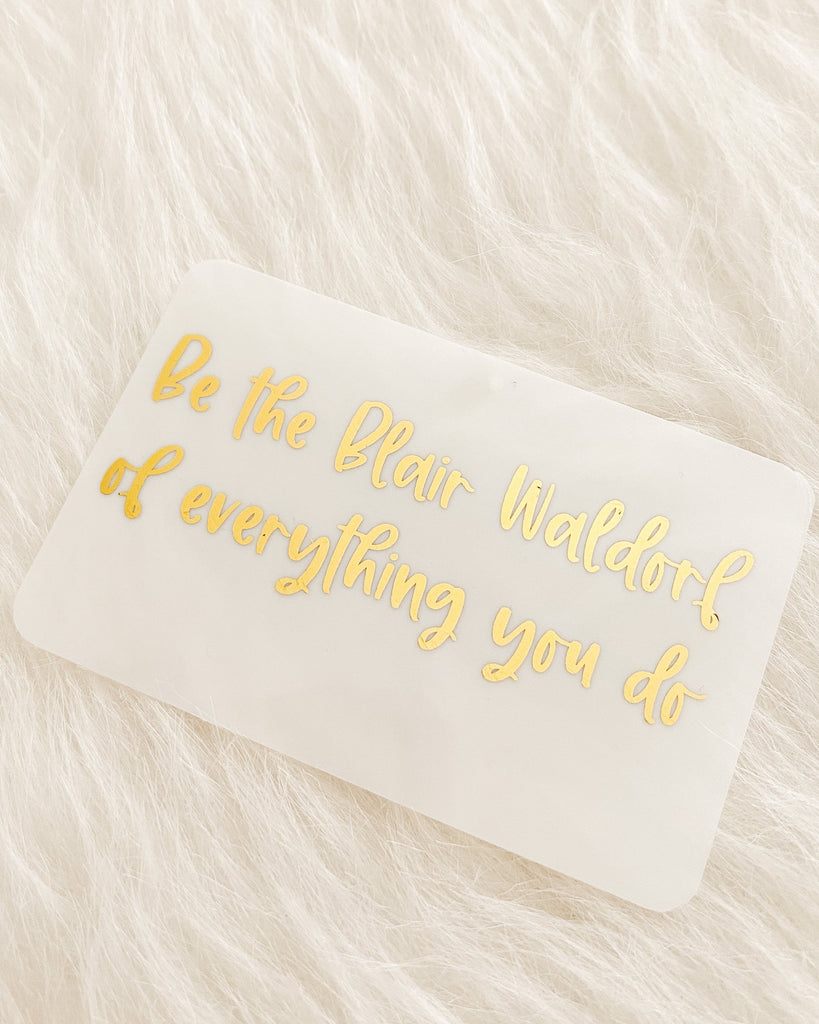 Be the Blair Waldorf
of everything you do